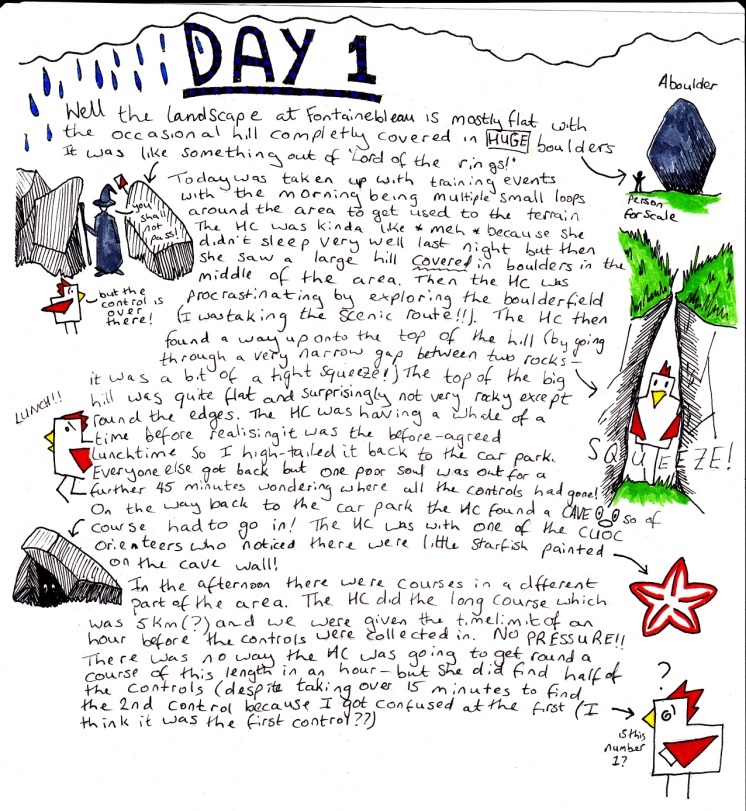 DAY 1
A boulder
Well the landscape at Fontainebleau is mostly flat with
the occasional hill completly covered in HUGE boulders
It was like something out of 'Lord of the rings!'
person
for scale
Today was taken up with training events
with the morning being multiple small loops
around the area to get used to the terrain
The HC was kinda like * meh * because she
didn't sleep very well last night but then
she saw a large hill covered in boulders in the
middle of the area. Then the HC was
procrastinating by exploring the boulderfield
(I was taking the scenic route!!). The HC then
found a way up onto the top of the hill (by going
through a very narrow gap between two rocks –
it was a bit of a tight squeeze!) The top of the big
hill was quite flat and surprisingly not very rocky except
round the edges. The HC was having a whale of a
time before realising it was the before-agreed
lunchtime so I high-tailed it back to the car park.
Everyone else got back but one poor soul was out for a
further 45 minutes wondering where all the controls had gone!
On the way back to the car park the HC found a CAVE so of
course had to go in! The HC was with one of the CUOC
orienteers who noticed there were little starfish painted
on the cave wall!
you
shall
not
pass!
but the
control is
over
there!
SQUEEZE!
LUNCH!!
In the afternoon there were courses in a different
part of the area. The HC did the long course which
was 5km(?) and we were given the timelimit of an
hour before the controls were collected in. NO PRESSURE!!
There was no way the HC was going to get round a
course of this length in an hour – but she did find half of
the controls (despite taking over 15 minutes to find
the 2nd control because I got confused at the first (I
think it was the first control??)
?
is this
number
1?